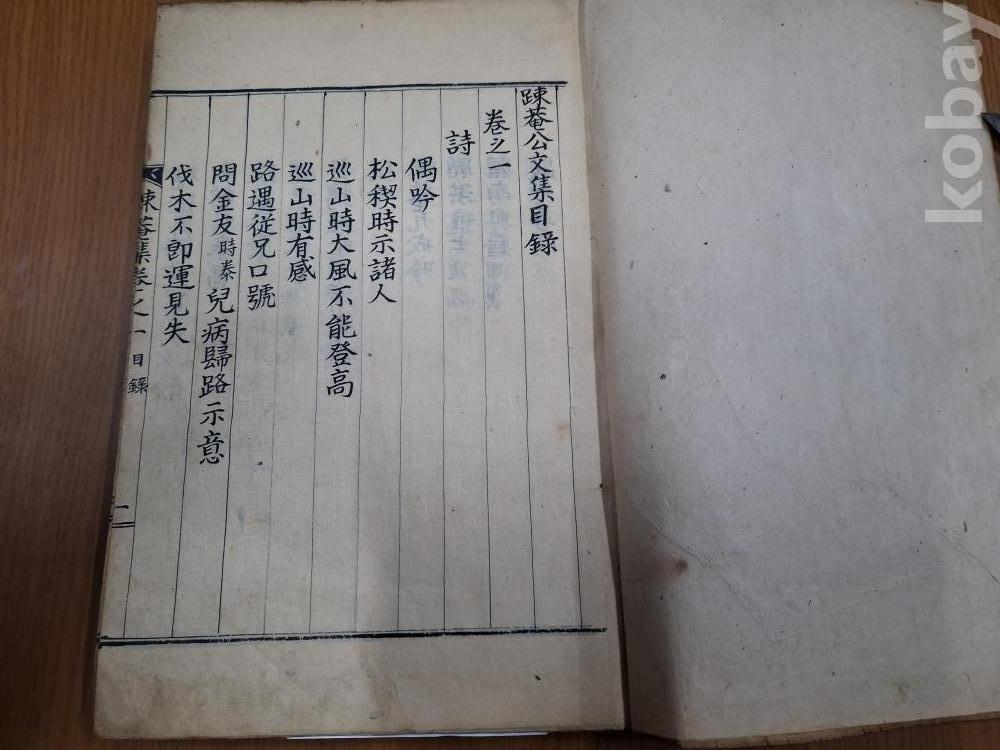 踈菴公文集目錄
卷之一
詩
偶吟
松稧時示諸人
巡山時大風不能登高
巡山時有感
路遇從兄口號
問金友時泰兒病歸路示意
伐木不即運見失
踈菴集卷之一 目錄 一
kobay